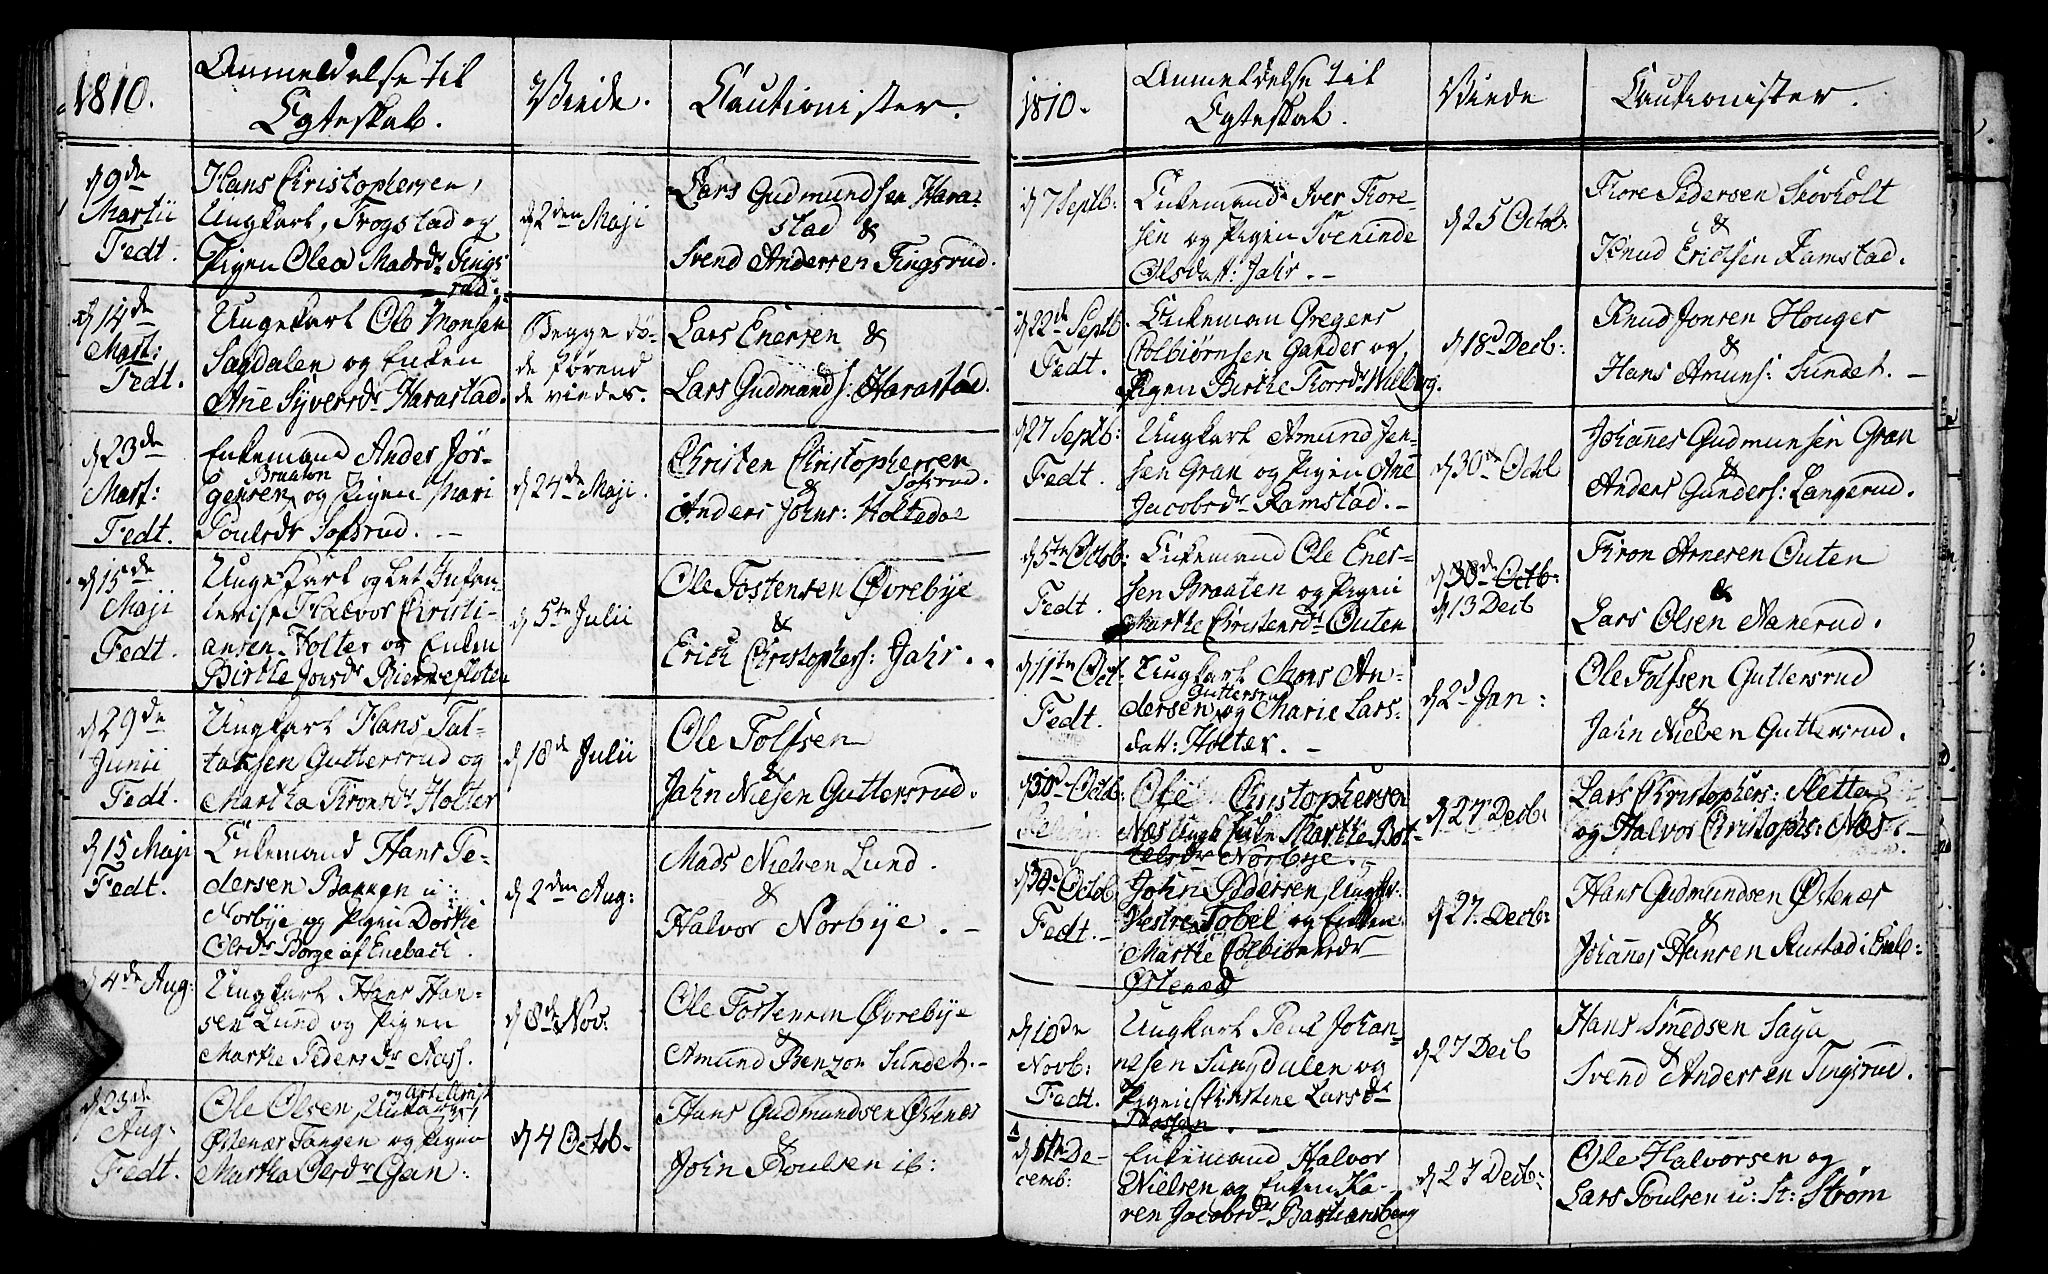 1810.
Anmeldelse til
Egteskab.
Viede.
Cautionister.
d 9de
Martii
Fedt.
Hans Christophersen,
Ungkarl, Trogstad og
Pigen Olea Madsdr Tings
rud.
d 2den Maji
Lars Gudmundsen Hara-
stad &
Svend Andersen Tingsrud.
d 14de
Mart:
Fedt.
Ungekarl Ole Monsen
Sagdalen og Enken
Ane Syversdr Harastad.
Begge dø-
de førend
de viedes.
Lars Enersen &
Lars Gudmands: Harastad.
d 23de
Mart:
Fedt.
Enkemand Ander Jør-
Braaten
gensen og Pigen Mari
Poulsdr Sofsrud. -
d 24de Maji.
Christen Christophersen
Sofsrud.
&
Anders Johns: Holtedal
d 15de
Maji
Fedt.
Ungekarl og Let Infan-
terist Halvor Christi-
ansen Holter og Enken
Birthe Jonsdr Bierkefloten
d 5te Julii
Ole Tostensen Øvrebye
&
Erich Christophers: Jahr.
d 29de
Junii
Fedt.
Ungkarl Hans Tol-
lavsen Guttersrud og
Martha Tronsdr Holter
d 18de Julii
Ole Tolfsen
&
Jahn Nielsen Guttersrud.
d 15 Maji
Fedt.
Enkemand Hans Pe-
dersen Bakken u:
Norbye og Pigen Dorthe
Olsdr Borge af Enebach.
d 2den Aug:
Mads Nielsen Lund.
&
Halvor Norbye. -
d 4de Aug:
Ungkarl Hans Han-
sen Lund og Pigen
Marthe Pedersdr Aass.
d 8de Nov:
Ole Tostensen Øvrebye
&
Amund Benzon Sundet. -
d 23de
Aug.
Fedt.
og Artillerist
Ole Olsen Ungkarl
Østenæs Tangen og Pigen
Martha Olsdr Gran:
d 4 Octb.
Hans Gudmundsen Østenæs
&
John Poulsen ib:
1810.
Anmeldelse til
Egteskab.
Viede
Cautionister.
d 7 Septb:
Enkemand Iver Tore-
sen og Pigen Sveninde
Olsdatt: Jahr. -
d 25 Octob.
Tore Pedersen Skovholt
&
Knud Erichsen Ramstad.
d 22d Septb.
Fedt.
Enkeman Gregers
Colbiørnsen Gander og
Pigen Birthe Torsdr Wilberg.
d 18d Decb:
Knud Jonsen Houger
&
Hans Amuns: Sundet. -
d 27 Septb:
Fedt.
Ungkarl Amund Jen-
sen Gran og Pigen Ane
Jacobsdr Ramstad. -
d 30te Octb
Johannes Gudmunsen Gran
&
Anders Gunders: Langerud.
d 5te Octob:
Fedt.
Enkemand Ole Ener-
sen Braaten og Pigen
Marthe Christensdr Outen
d 30de Octb:
d 13 Decb
Tron Arnesen Outen
&
Lars Olsen Aanerud.
d 11te Oct:
Fedt.
Ungkarl Mons An-
Guttersrud
dersen og Marie Lars-
datt: Holter. -
d 2d Jan:
Ole Tolfsen Guttersrud
&
Jahn Nielsen Guttersrud.
d 30te Octob:
Ole Christophersen
Næs Ungk Enke Marthe Bot-
telsdr Norbye. -
d 27 Decb.
Lars Christophers: Sletta
og Halvor Christophs: Næs -
d 30d Octob
Fedt. -
John Pedersen Ungkr.
Vestre Tobøl og Enken
Marthe Colbiørnsdr
Østenæs
d 27. Decb:
Hans Gudmundsen Østenæs
&
Johannes Hansen Rustad i Eneb:
d 10de
Novb:
Fedt.
Ungkarl Poul Johan-
nesen Sungdalen og
Pigen Christine Larsdr
Mossen.
d 27 Decb
Hans Smedsen Saga
&
Svend Andersen Tingsrud.
d 1te De-
cemb:
Enkemand Halvor
Nielsen og Enken Ka-
ren Jacobsdr Bastiansberg
d 27 Decb:
Ole Halvorsen og
Lars Poulsen u: St: Strøm